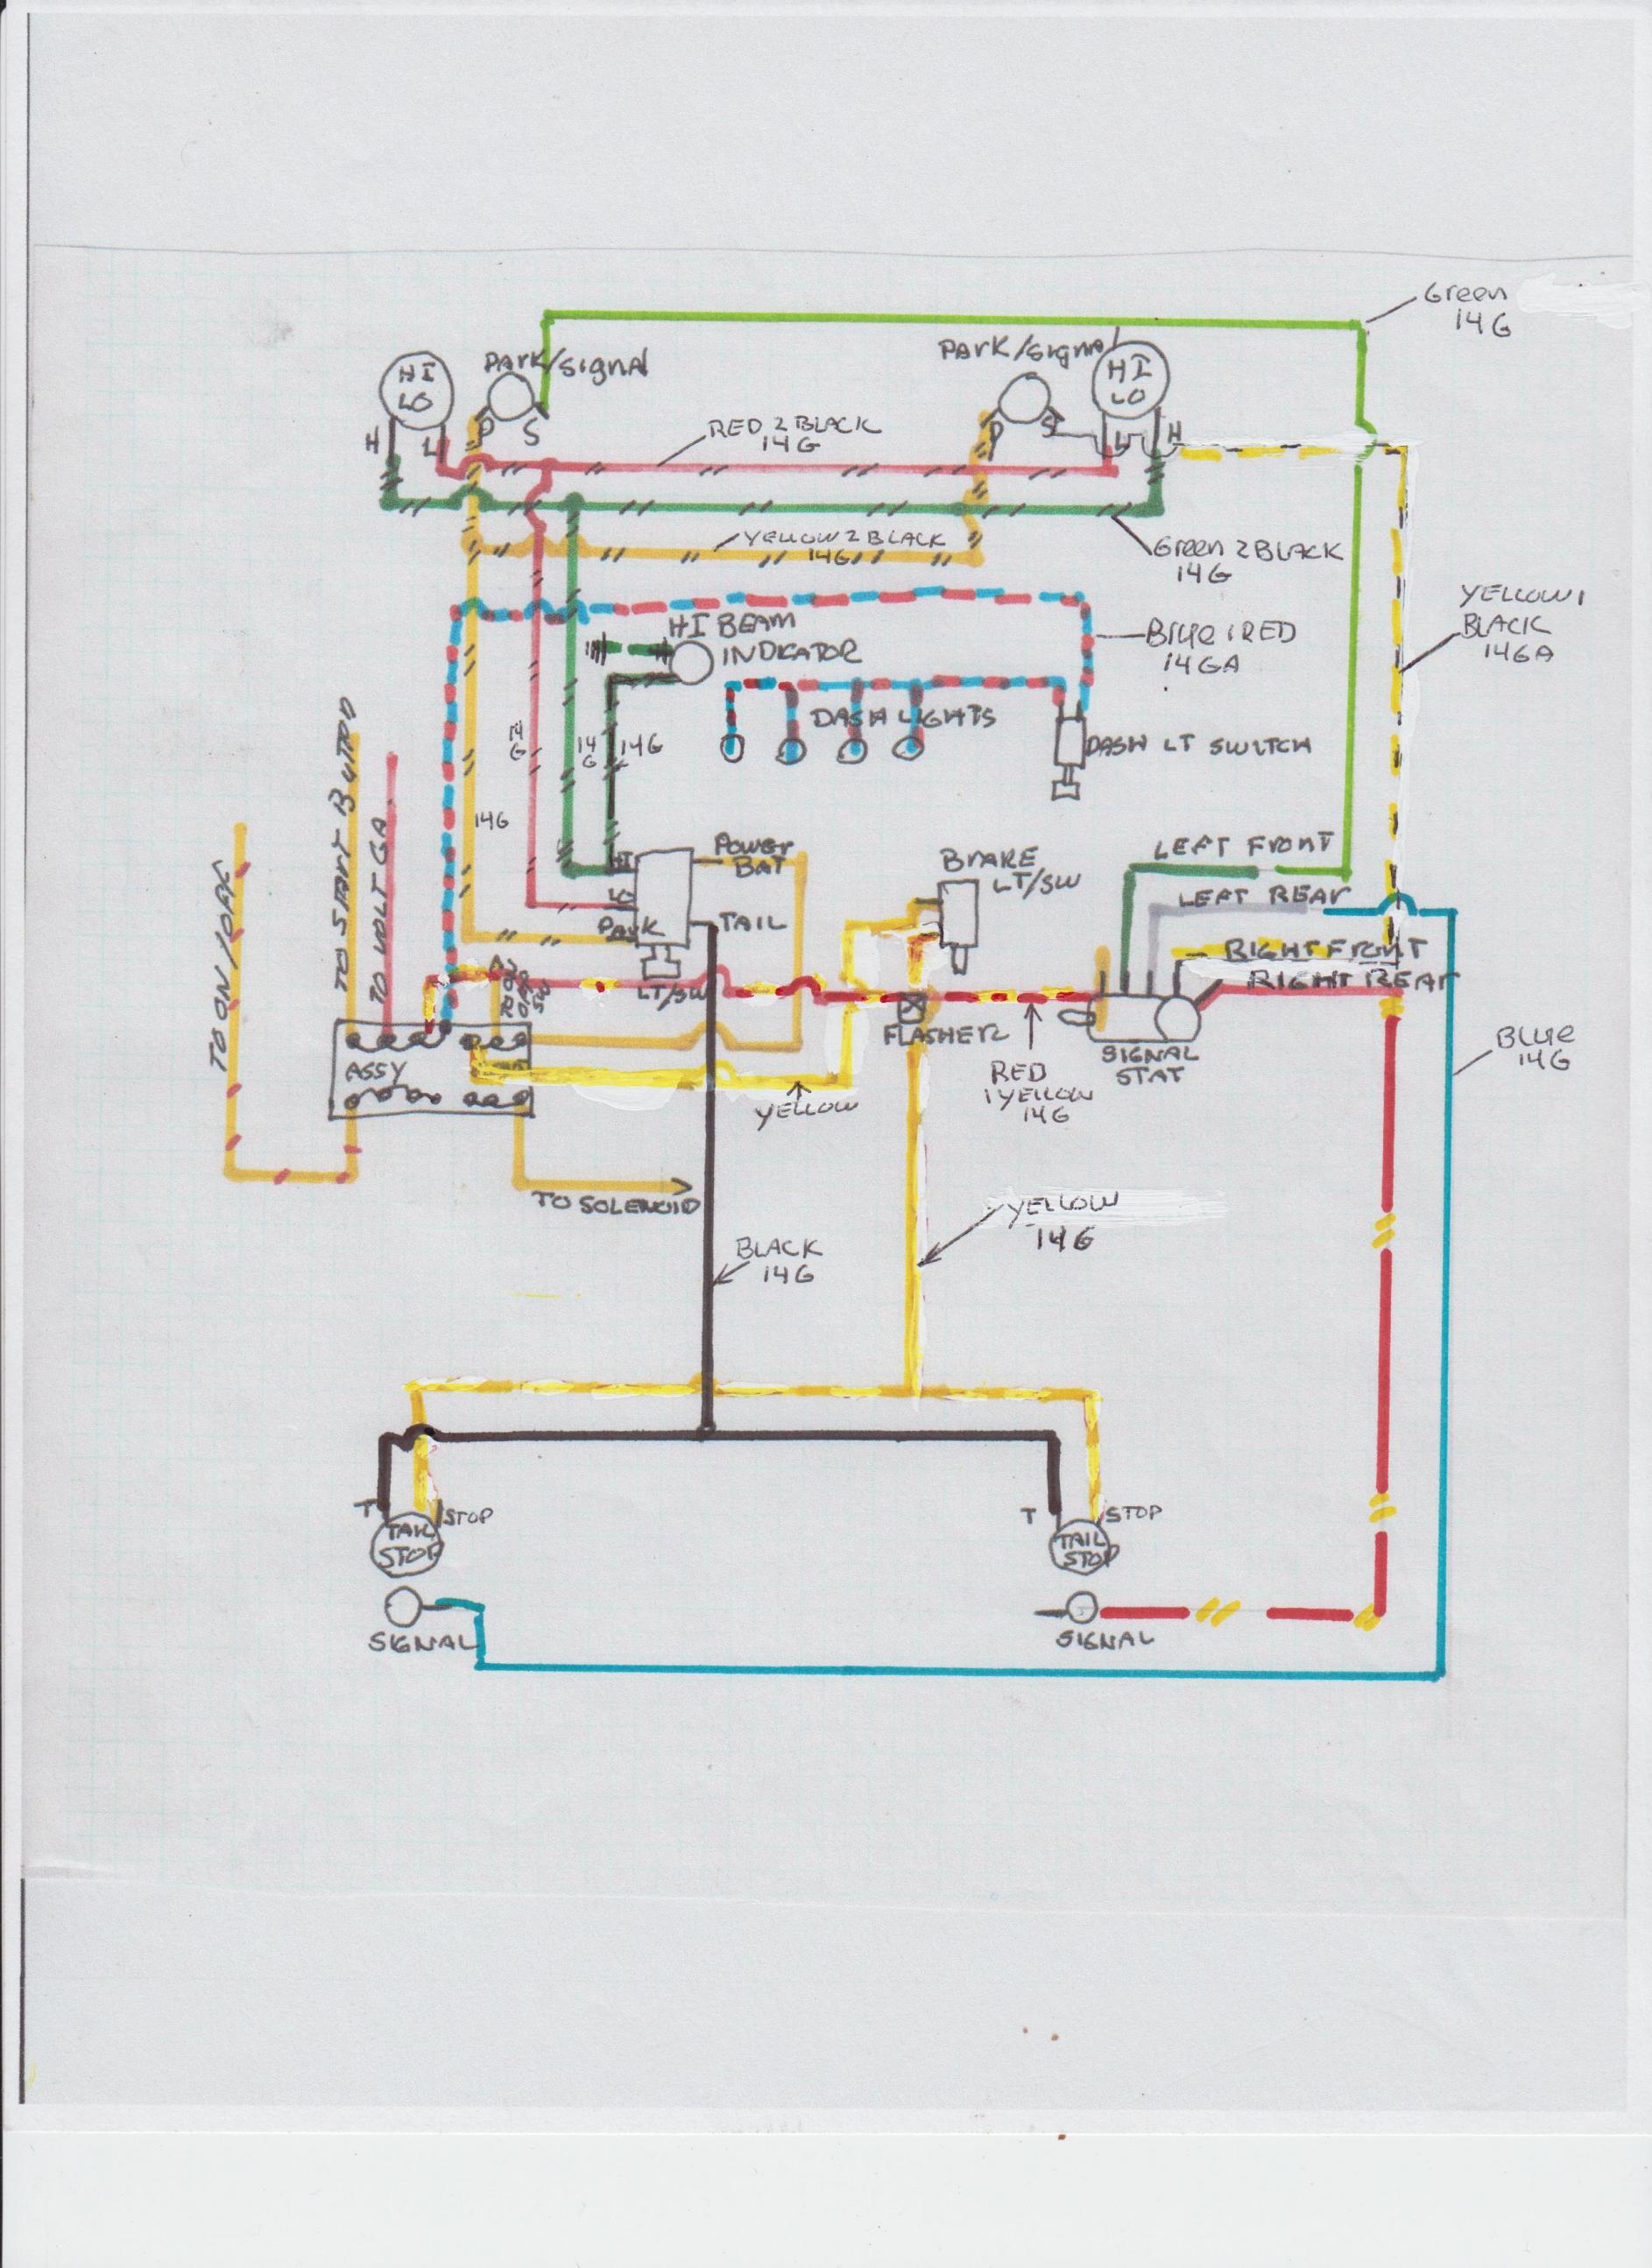 Green
14G
PARK/signal
PARK/signal
HI
LO
HI
LO
H
L
P
S
P
S
L
H
RED 2 BLACK
14G
YELLOW 2 BLACK
14G
Green 2 BLACK
14G
YELLOW 1
BLACK
14GA
HI BEAM
INDICATOR
Blue 1 RED
14GA
DASH LIGHTS
DASH LT SWITCH
14
G
14
G
14G
14G
TO ON/OFF
TO START BUTTON
TO VOLT GA
HI
LO
PARK
POWER
BAT
TAIL
LT/SW
BRAKE
LT/SW
LEFT FRONT
LEFT REAR
RIGHT FRONT
RIGHT REAR
FLASHER
SIGNAL
STAT
RED
1 YELLOW
14G
BLUE
14G
ASSY
YELLOW
TO SOLENOID
BLACK
14G
YELLOW
14G
T
STOP
TAIL
STOP
SIGNAL
T
STOP
TAIL
STOP
SIGNAL